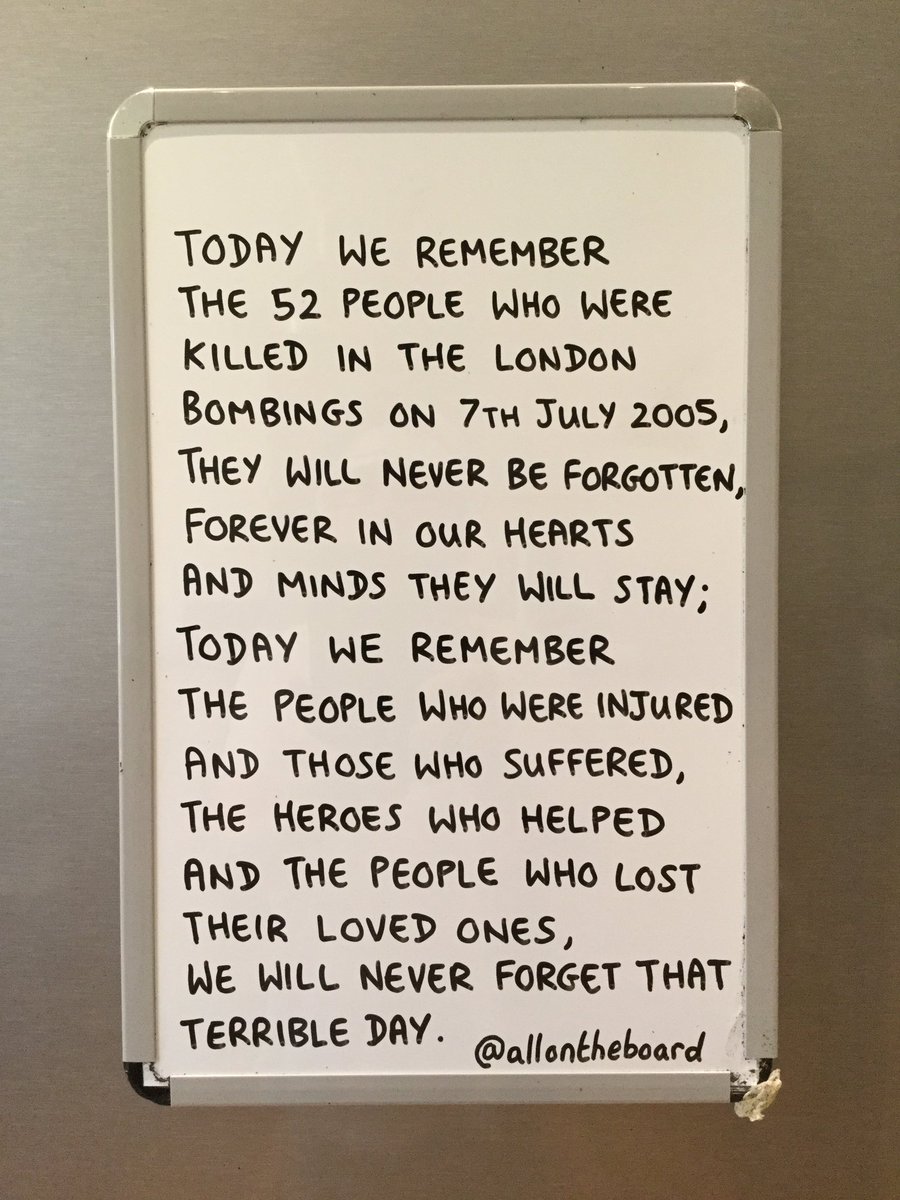 TODAY WE REMEMBER
THE 52 PEOPLE WHO WERE
KILLED IN THE LONDON
BOMBINGS ON 7TH JULY 2005,
THEY WILL NEVER BE FORGOTTEN,
FOREVER IN OUR HEARTS
AND MINDS THEY WILL STAY;
TODAY WE REMEMBER
THE PEOPLE WHO WERE INJURED
AND THOSE WHO SUFFERED,
THE HEROES WHO HELPED
AND THE PEOPLE WHO LOST
THEIR LOVED ONES,
WE WILL NEVER FORGET THAT
TERRIBLE DAY.
@allontheboard